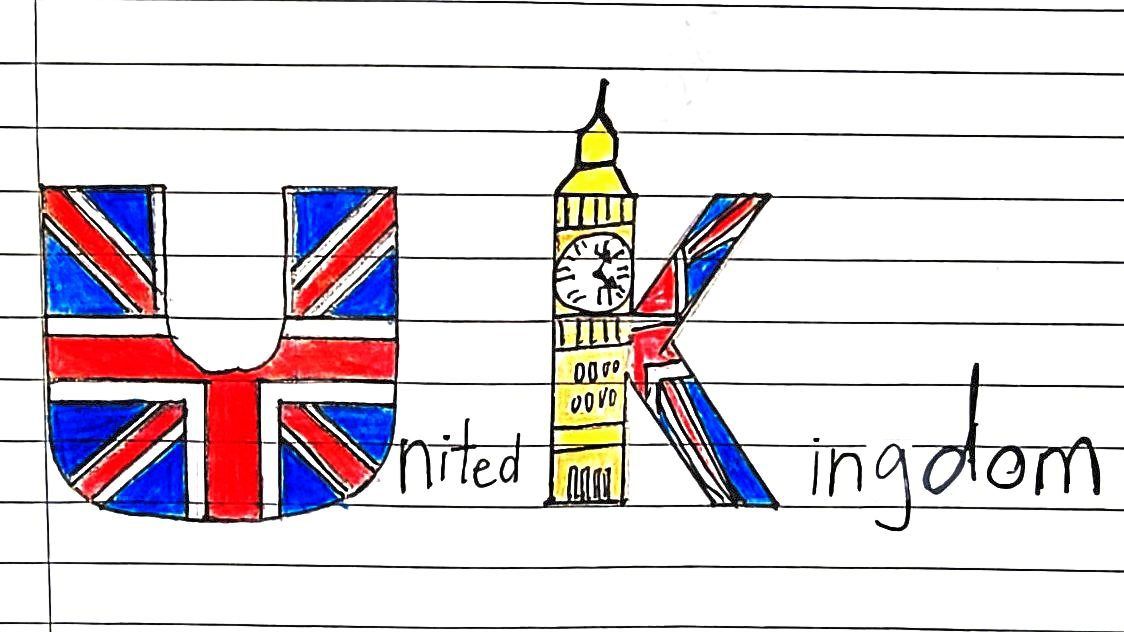 United Kingdom